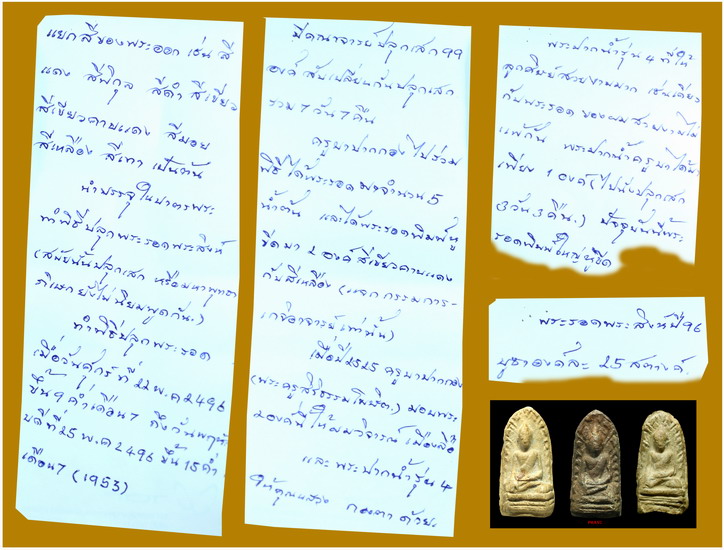 แยกสีของพระออก เช่น สี
แดง สีพิกุล สีดำ สีเขียว
สีเขียวคาบแดง สีมอย
สีเหลือง สีเทา เป็นต้น
นำบรรจุในบาตรพระ
ทำพิธีปลุกพระรอดพระสิงห์
(สมัยนั้นปลุกเสก หรือมหาพุทธา
ภิเษก ยังไม่นิยมพูดกัน.)
ทำพิธีปลุกพระรอด
เมื่อวันศุกร์ ที่ 22 พ.ค 2496
ขึ้น 9 ค่ำเดือน 7 ถึงวันพฤหัส
บดีที่ 25 พ.ค 2496 ขึ้น 15 ค่ำ
เดือน 7 (1953)
มีคณาจารย์ปลุกเสก 99
องค์ สับเปลี่ยนกันปลุกเสก
รวม 7 วัน 7 คืน
ครูบาปากกอง ไปร่วม
พิธี ได้พระรอดมาจำนวน 5
น้ำต้น และได้พระรอดพิมพ์หู
ขีดมา 2 องค์ สีเขียวคาบแดง
กับสีเหลือง (แจกกรรมการ-
เกจิอาจารย์เท่านั้น)
เมื่อปี 2525 ครูบาปากกอง
(พระครูสิริธรรมโฆษิต.) มอบพระ
2 องค์นี้ให้ผมวิจารณ์ เมืองลือ
และ พระปากน้ำรุ่น 4
ให้คุณแสวง กมตา ด้วย.
พระปากน้ำรุ่น 4 ที่ให้
ลูกศิษย์สวยงามมาก เช่นเดียว
กับพระรอด ของผมสวยงามไม่
แพ้กัน พระปากน้ำครูบาได้มา
เพียง 1 องค์ (ไปนั่งปลุกเสก
3 วัน 3 คืน.) ปัจจุบันนี้พระ
รอดพิมพ์ใหญ่หูขีด
พระรอดพระสิงห์ปี 96
บูชาองค์ละ 25 สตางค์.